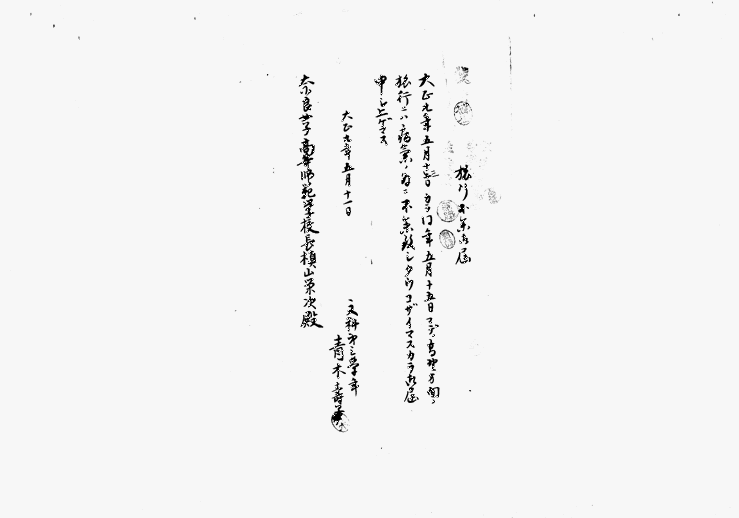 旅行不参加届
大正九年五月十三日ヨリ同年五月十五日マデ
旅行ニハ病気ノ為ニ不参致シタウゴザイマスカラ御届
申シ上ゲマス
大正九年五月十一日
文科第三学年
青木
奈良女子高等師範学校長槇山栄次殿